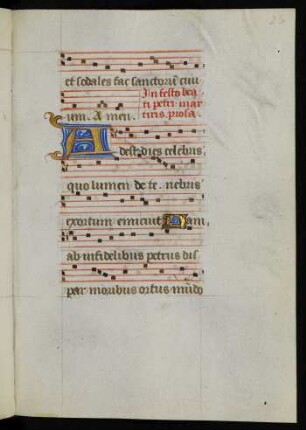 23
et sodales fac sanctorū ciui
um. A men.
In festo bea
ti petri mar
tiris. prosa.
Adest dies celebris
quo lumen de te. nebris
exortum emicuit Nam
ab infidelibus petrus dis
par moribus ortus mūdo